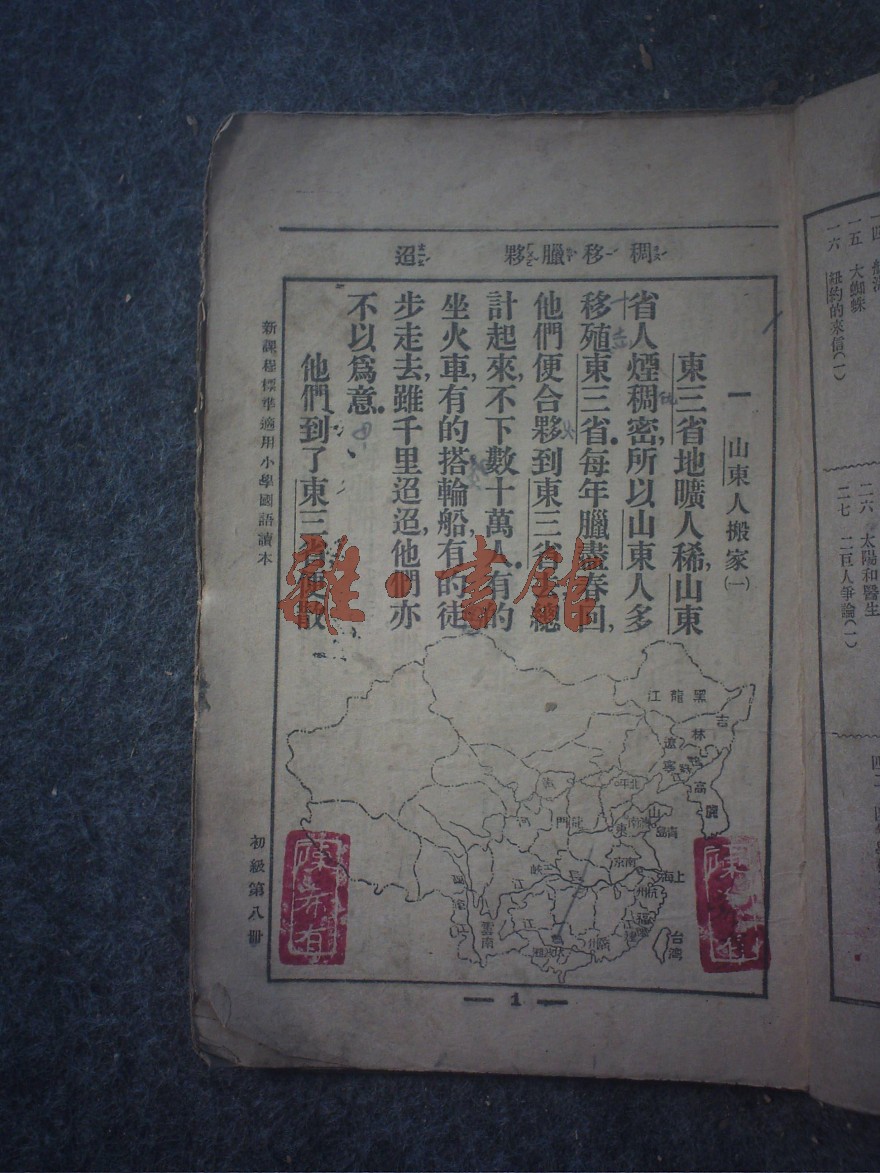 稠 移 臘 夥 迢
一 山東人搬家(一)
東三省地曠人稀,山東
省人煙稠密,所以山東人多
移殖東三省。每年臘盡春回,
他們便合夥到東三省去,總
計起來,不下數十萬人。有的
坐火車,有的搭輪船,有的徒
步走去,雖千里迢迢,他們亦
不以爲意。
他們到了東三省,便散
黑龍江
吉林
遼寧
鴨綠江
高麗
北平
山東
濟南
青島
龍門
三峽
長江
南京
上海
杭州
福建
雲南
台灣
1
新課程標準適用小學國語讀本
初級第八冊
雜·書館
一五 大蜘蛛
一六 紐約的來信(一)
二六 太陽和醫生
二七 二巨人爭論(一)